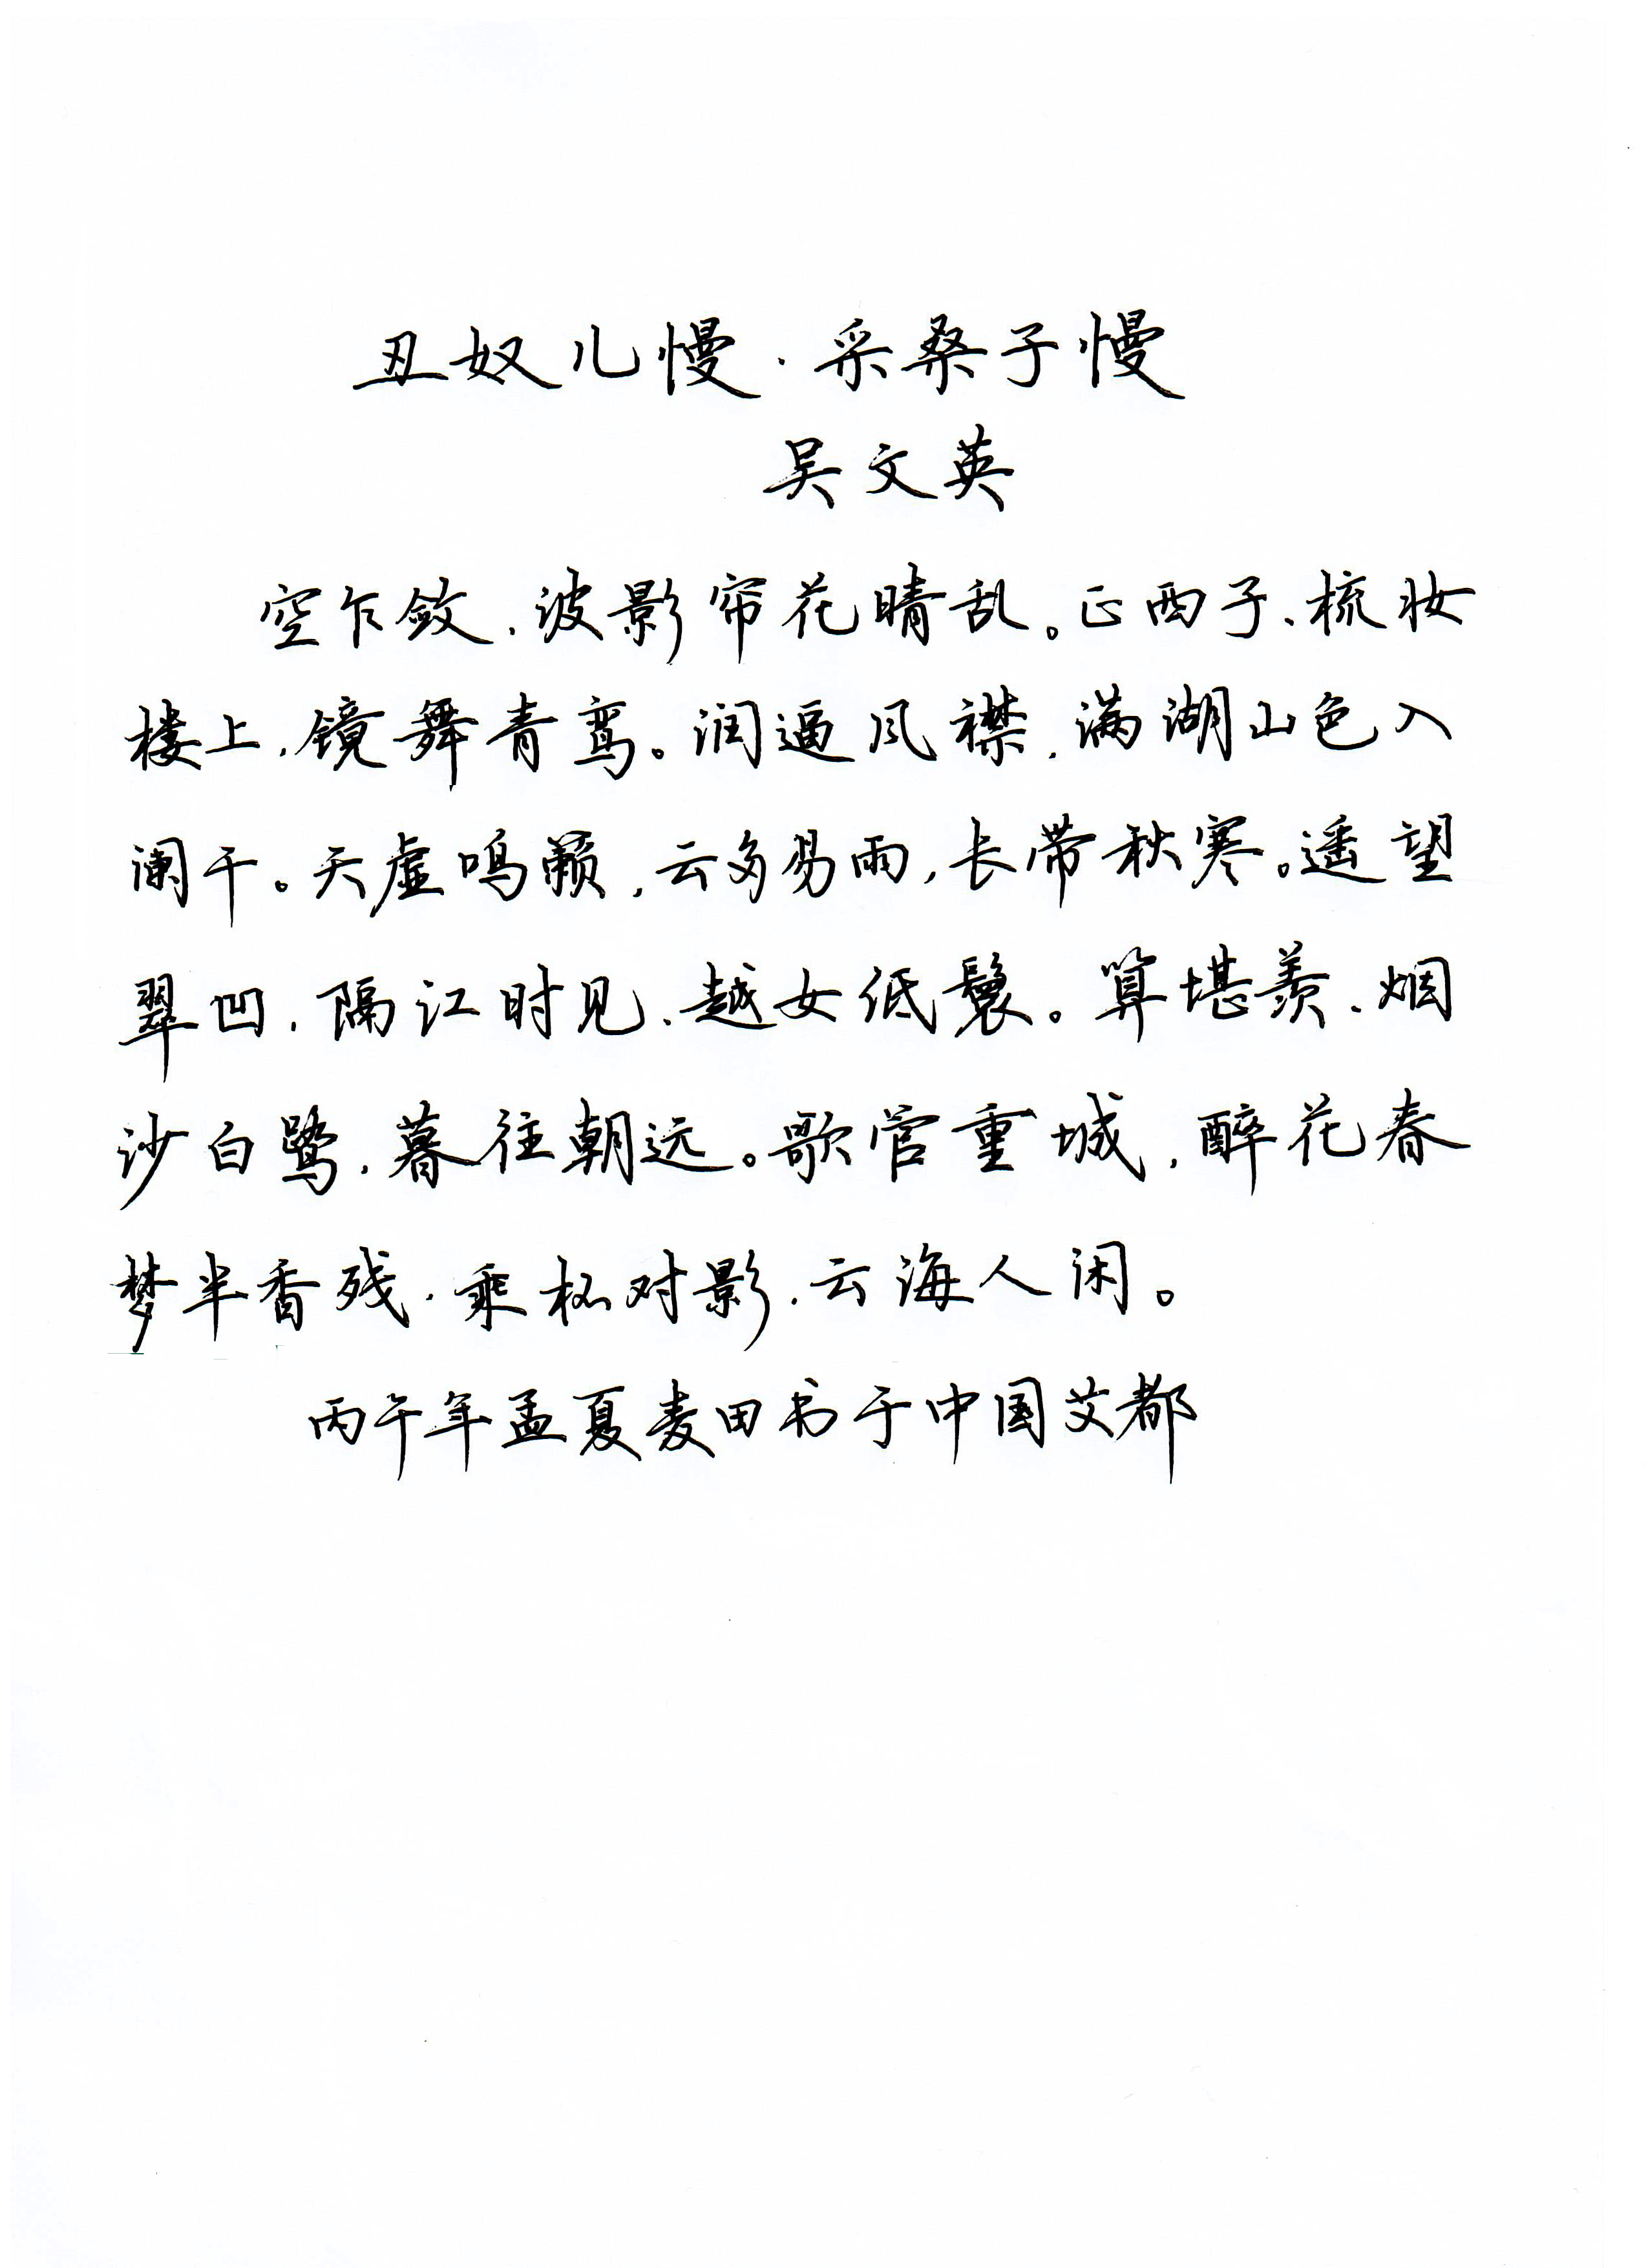 丑奴儿慢·采桑子慢
吴文英
空乍敛、波影帘花晴乱。正西子、梳妆
楼上,镜舞青鸾。润逼风襟,满湖山色入
阑干。天虚鸣籁,云多易雨,长带秋寒。遥望
翠凹,隔江时见、越女低鬟。算堪羡、烟
沙白鹭,暮往朝远。歌管重城,醉花春
梦半香残。乘杯对影、云海人闲。
丙午年孟夏麦田书于中国艾都